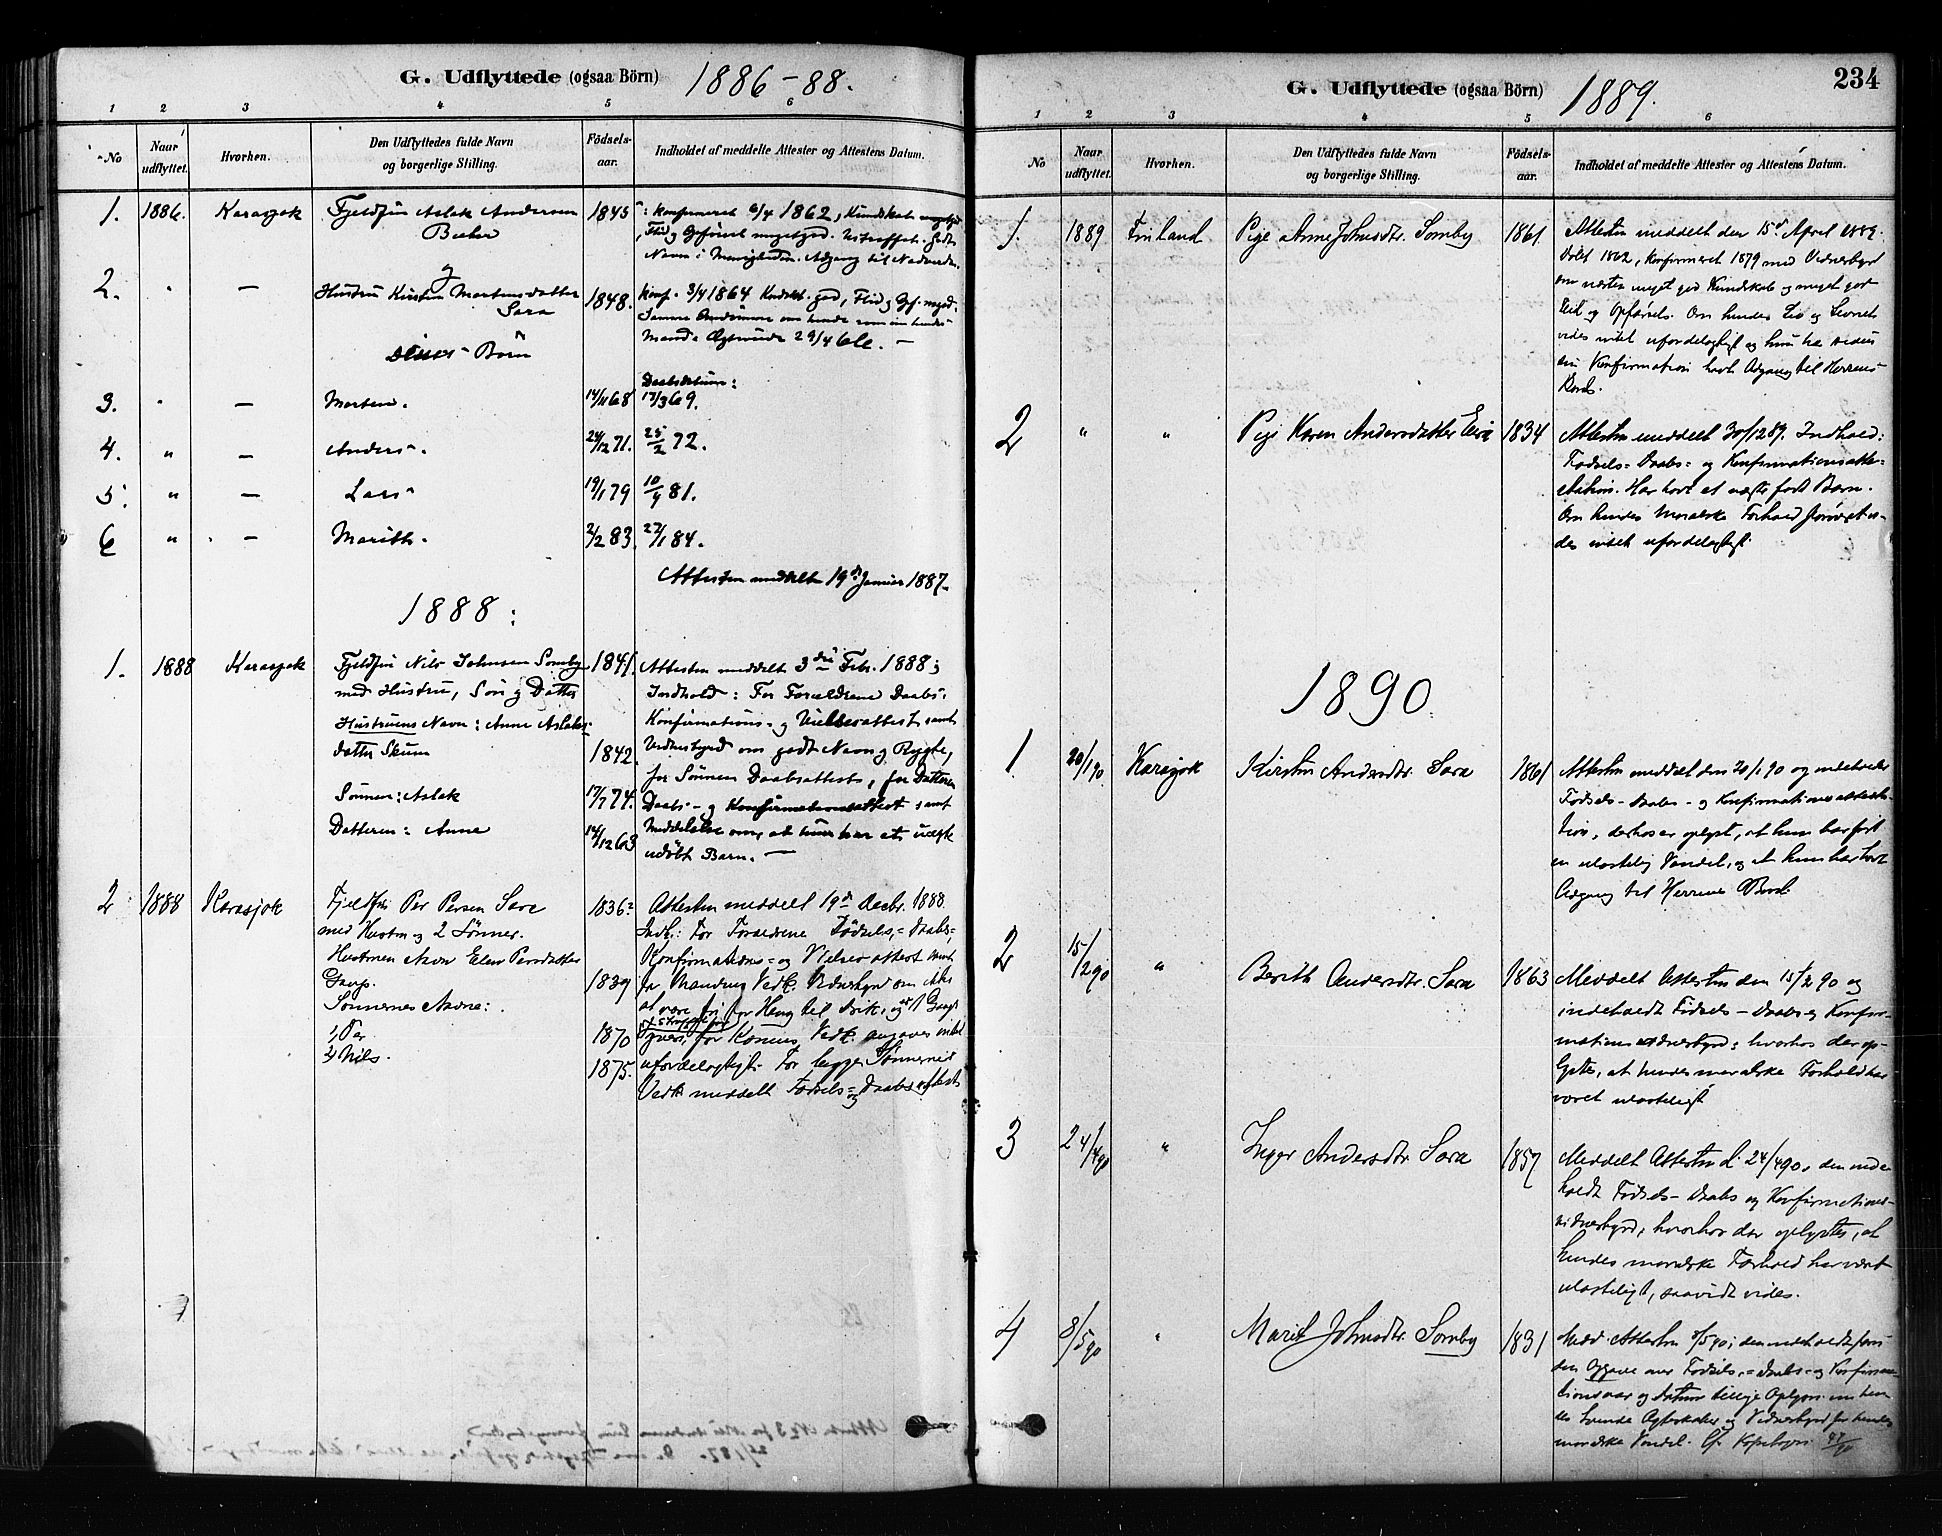 G. Udflyttede (ogsaa Börn) 1886-88.
1 2 3 4 5 6
No
Naar udflyttet.
Hvorhen.
Den Udflyttedes fulde Navn og borgerlige Stilling.
Födsels-aar.
Indholdet af meddelte Attester og Attestens Datum.
1. 1886. Karasjok Fjeldfin Aslak Andersen 1845 Konfirmeret 6/4 1862, Kundskab
Navn i Menigheden. Adgang til Nadverden.
og
2. " — Hustru Kirsten Mortensdatter 1848. Konf. 3/4 1864 Kundsk. god, Flid og Opf. meget
Sara
Børn
Daabsdatum:
3. " — Morten. 14/11 68 17/3 69.
4. " — Anders. 24/12 71. 25/2 72.
5. " — Lars 19/1 79 10/4 81.
6 " — Marith. 2/2 83. 27/1 84.
Attesten meddelt 19de Januar 1887.
1888:
1. 1888 Karasjok Fjeldfin Nils Johnsen Somby 1841. Attesten meddelt 3die Febr. 1888;
med Hustru, Søn og Datter Indhold: For Forældrene Daabs-
Hustruens Navn: Anne Aslaks- Konfirmations- og Vielsesattest samt
datter Skum 1842. Vidnesbyrd om godt Navn og Rygte,
for Sønnen Daabsattest, for Datteren
Sønnen: Aslak 17/7 74. Daabs- og Konfirmationsattest samt
Datteren: Anne 14/12 63 Meddelelse om, at hun har et uægte
udöbt Barn. —
2 1888 Karasjok Fjeldfin Per Persen Sara 1836 Attesten meddelt 19de Decbr. 1888.
med Hustru og 2 Sønner. Indh.: For Forældrene Fødsels,- Daabs-,
Hustruens Navn Elen Persdatter Konfirmations- og Vielsesattest samt
1839 for Mandens Vedk. Vidnesbyrd om ikke
Sønnernes Navne: at være fri for Hang til Drik, og
1, Per 1870 for Konens Vedk. angaves intet
2, Nils. 1875. ufordelagtigt. For begge Sønnernes
Vedk. meddelt Fødsels- og Daabsattest
G. Udflyttede (ogsaa Börn) 1889. 234
1 2 3 4 5 6
No
Naar udflyttet.
Hvorhen.
Den Udflyttedes fulde Navn og borgerlige Stilling.
Födsels-aar.
Indholdet af meddelte Attester og Attestens Datum.
1. 1889 Finland Pige Anne Johnsdtr. Somby 1861 Attesten meddelt den 15de April 1889.
Døbt 1862, konfirmeret 1879 med Vidnesbyrd
om næsten meget god Kundskab og meget god
Flid og Opførsel. Om hendes Liv og Levnet
vides intet ufordelagtigt og hun har siden
sin Konfirmation havt Adgang til Herrens
Bord.
2 " " Pige Karen Andersdatter 1834 Attesten meddelt 30/12 89. Indhold:
Fødsels- Daabs- og Konfirmationsatte-
station. Har havt et uægte født Barn.
Om hendes Moralske Forhold forøvrigt vi-
des intet ufordelagtigt.
1890.
1 20/1 90 Karasjok Kirsten Andersdtr. Sara 1861 Attesten meddelt den 20/1 90 og indeholder
Fødsels- Daabs- og Konfirmationsattesta-
tion, derhos er oplyst, at hun har ført
en ulastelig Vandel, og at hun har havt
Adgang til Herrens Bord.
2 15/2 90 " Berith Andersdtr. Sara 1863 Meddelt Attesten den 15/2 90 og
indeholdt Fødsels- Daabs og Konfir-
mationsvidnesbyrd; hvorhos der op-
lystes, at hendes moralske Forhold har
været ulasteligt
3 24/4 90 " Inger Andersdtr. Sara 1857 Meddelt Attesten d. 24/4 90, den inde-
holdt Fødsels- Daabs og Konfirmations-
vidnesbyrd, hvorhos der oplystes, at
hendes moralske Forhold har været
ulasteligt, saavidt vides.
4 8/5 90 " Marit Johnsdtr. Somby 1831 Medd. Attesten 8/5 90; den indeholdt foru-
den Opgave over Fødsels,- Daabs- og Konfirma-
tionsaar og Datum tillige Oplysn. om hen-
des Ægteskaber og Vidnesbyrd for hendes
moralske Vandel. Cfr. Kopibogen 47/90